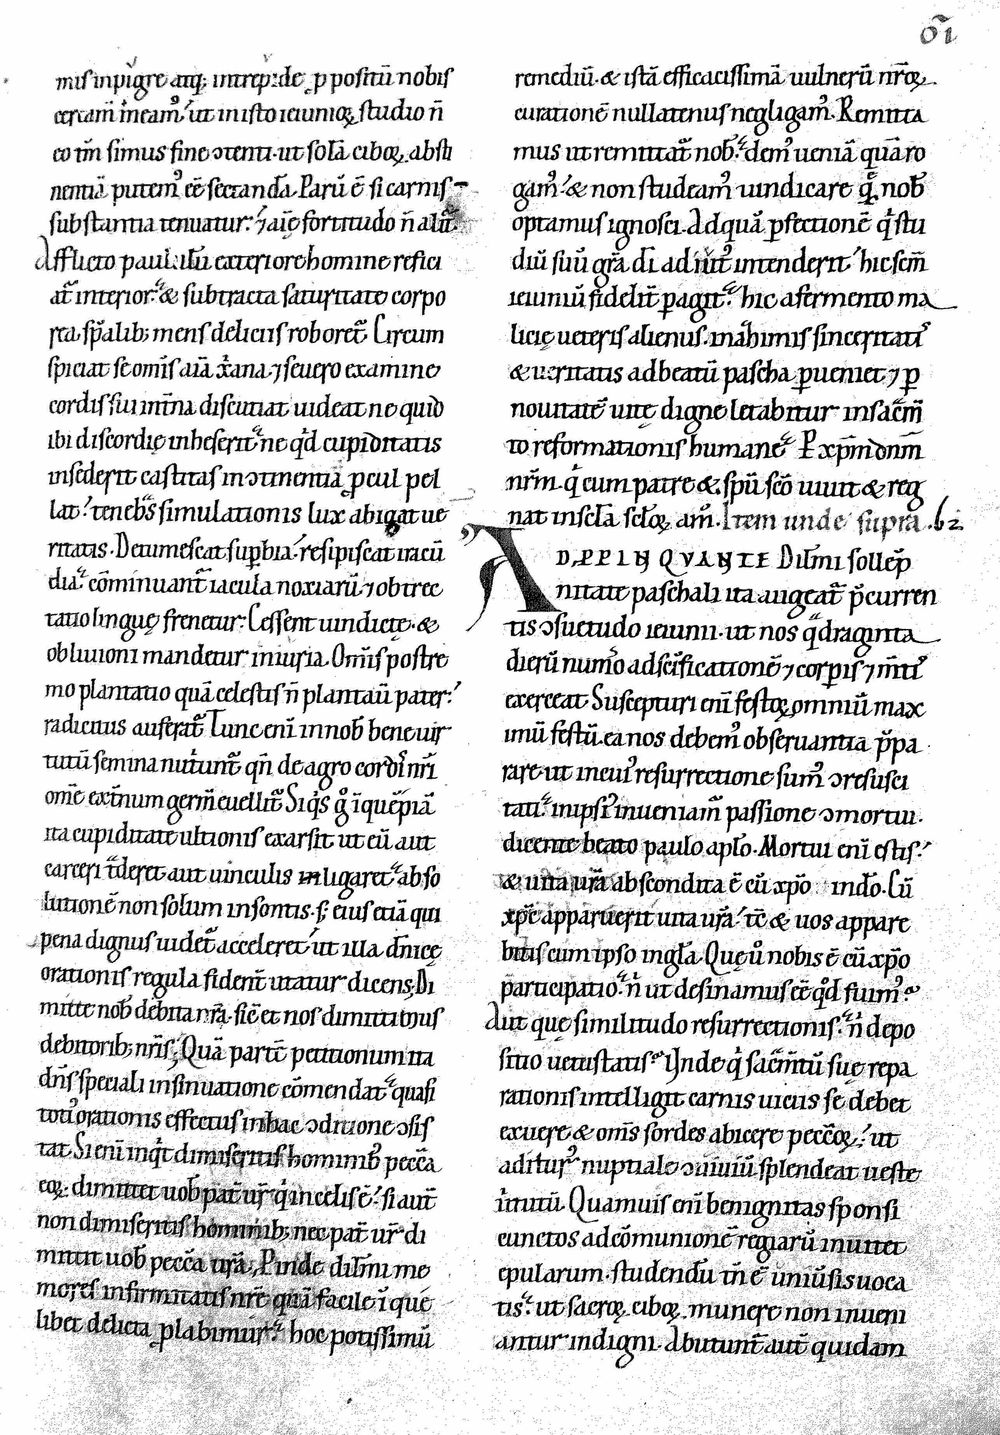 61
mis inpigre atq; intrepide ꝓpositū nobis
certam̄ ineam᷒. ut in isto ieiunioꝝ studio n̄
eo tm̄ simus fine ↄtenti. ut solā ciboꝝ absti
nentiā putem᷒ eē sectandā. Parū ē si carnis
substantia tenuatur. ⁊ aīę fortitudo n̄ alit᷑.
Afflicto paululū exteriore homine refici
at᷑ interior. & subtracta saturitate corpo
rea spalib; mens deliciis roboret᷑. Circum
spiciat se om̄s aīa xp̄iana ⁊ seuero examine
cordis sui int̄na discutiat uideat ne quid
ibi discordię inheserit. ne qd cupiditatis
insederit castitas inↄtinentiā ꝓcul pel
lat. tenebs̄ simulationis lux abigat ue
ritatis. Detumescat supbia. resipiscat iracū
dia. cōminuant᷑ iacula noxiarū ⁊ obtrec
tatio linguę frenetur. Cessent uindictę. &
obliuioni mandetur iniuria. Om̄s postre
mo plantatio quā celestis n̄ plantauit pater.
radicitus auferat᷑. Tunc enī in nob̄ bene uir
tutū semina nutriunt᷑ qn̄ de agro cordis nr̄i
om̄e ext̄num germ̄ euellit᷑. Siqs g̊ iqueপiā
ita cupiditate ultionis exarsit ut eū aut
carceri t̄deret aut uinculis inligaret. abso
lutionē non solum insontis. s; eius etiā qui
pena dignus uidet᷑ acceleret. ut illa dn̄icę
orationis regula fident᷑ utatur dicens; Di
mitte nob̄ debita nr̄a. sic̄ et nos dimittimus
debitorib; nr̄is; Quā partē petitionum ita
dn̄s speciali insinuatione cōmendat. quasi
toti᷒ orationis effectus in hac ↄditione ↄsis
tat. Si enī inqt dimiseritis hominib᷒ peccā
eoꝝ. dimittet uob̄ pat᷑ ur̄ qi in celis ē. si aut᷑
non dimiseritis hominib; nec pat᷑ ur̄ di
mittit uob̄ peccā ur̄a. Pinde dilm̄i me
mores infirmitatis nr̄ę quā facile ī que
libet delicta ꝓlabimur. hoc potissimū
remediū. & istā efficacissimā uulnerū nr̄oꝝ
curationē nullatenus negligam᷒. Remitta
mus ut remittat᷑ nob̄. dem᷒ ueniā quā ro
gam᷒. & non studeam᷒ uindicare q̄ nob̄
optamus ignosci. Ad quā ꝑfectionē qi stu
diū suū gr̄a di adiut᷒ intenderit. hic scm̄
ieiuniū fidelit᷑ ꝑagit. hic a fermento ma
licię ueteris alienus. in ażimis sinceritati᷒
& ueritatis ad beatū pascha ꝑueniet ⁊ ꝑ
nouitatē uitę digne letabitur in sacm̄
to reformationis humanę. P xp̄m dnm̄
nr̄m. qi cum patre & spū scō uiuit & reg
nat in sclā scloꝝ am̄. Item unde supra. 62
ADPPINQUANTE Dilm̄i sollep̄
nitate paschali ita augeat᷑ pcurren
tis ↄsuetudo ieiunii. ut nos qdraginta
dierū num᷒o ad scificationē ⁊ corpis ⁊ m̄ti᷒
exerceat. Suscepturi enī festoꝝ omniū max
imū festū. ea nos debem᷒ obseruantia pp̄a
rare. ut in cui᷒ resurrectione sum᷒ ↄresusci
tati. in ipsi᷒ inueniam᷑ passione ↄmortui.
dicente beato paulo aplo. Mortui enī estis.
& uita ur̄a abscondita ē cū xp̄o in do. Cū
xp̄c apparuerit uita ur̄a. tc̄ & uos appare
bitis cum ipso in gla. Quę uͦ nobis ē cū xp̄o
participatio. n̄ ut desinamus eē qd fuim᷒.
Aut que similitudo resurrectionis. n̄ depo
sitio uetustatis. Inde qi sacm̄tū suę repa
rationis intelligit carnis uiciis se debet
exuere & om̄s sordes abicere peccoꝝ. ut
aditur᷒ nuptiale ↄuiuiū splendeat ueste
uirtutū. Quamuis enī benignitas sponsi
cunctos ad cōmunionē regiarū inuitet
epularum. studendū tn̄ ē uniūsis uoca
tis. ut sacroꝝ ciboꝝ munere non inueni
antur indigni. Abutunt᷑ aut᷑ quidam